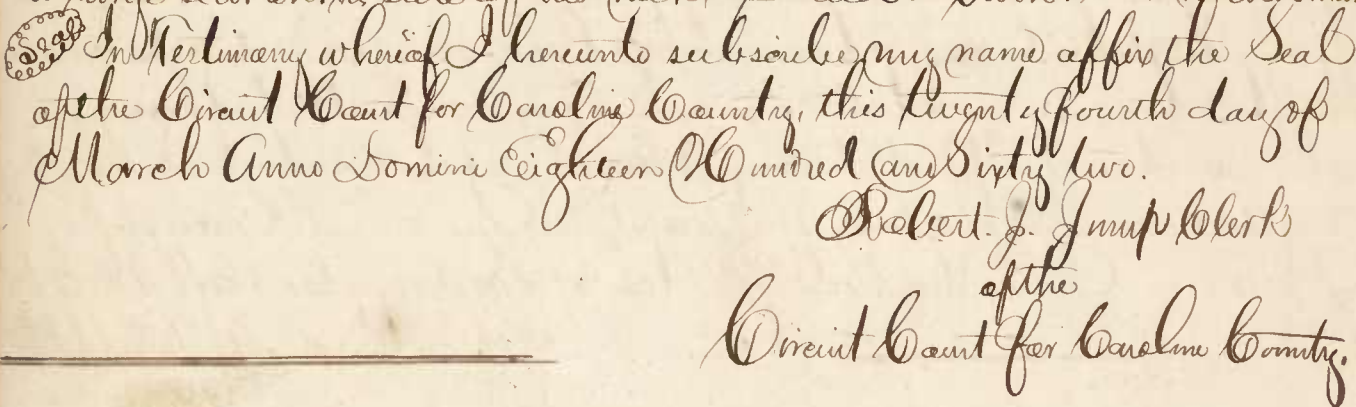 Seal In Testimony whereof I hereunto subscribe my name affix the Seal
of the Circuit Court for Caroline County, this twenty fourth day of
March Anno Domini Eighteen Hundred and Sixty two.
Robert. J. Jump Clerk
of the
Circuit Court for Caroline County.